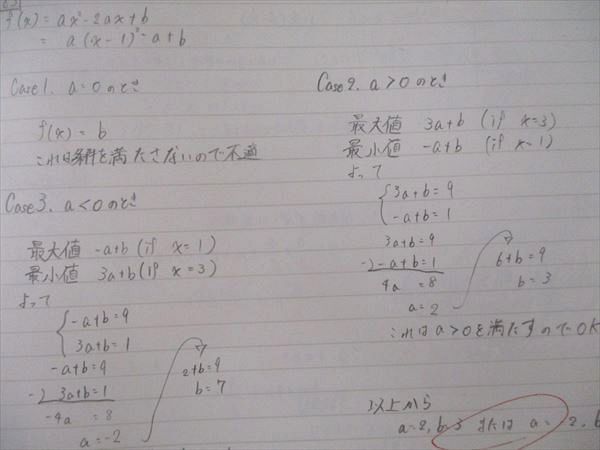 f(x) = ax²-2ax+b
= a(x-1)²-a+b
Case1. a=0のとき
f(x) = b
これは条件を満たさないので不適
Case2. a>0のとき
最大値 3a+b (if x=3)
最小値 -a+b (if x=1)
よって
{3a+b=9
-a+b=1
3a+b=9
-) -a+b=1
4a =8
a=2
6+b=9
b=3
これはa>0を満たすのでOK
Case3. a<0のとき
最大値 -a+b (if x=1)
最小値 3a+b (if x=3)
よって
{-a+b=9
3a+b=1
-a+b=9
-) 3a+b=1
-4a =8
a=-2
2+b=9
b=7
以上から
a=2, b=3 または a= 2, b